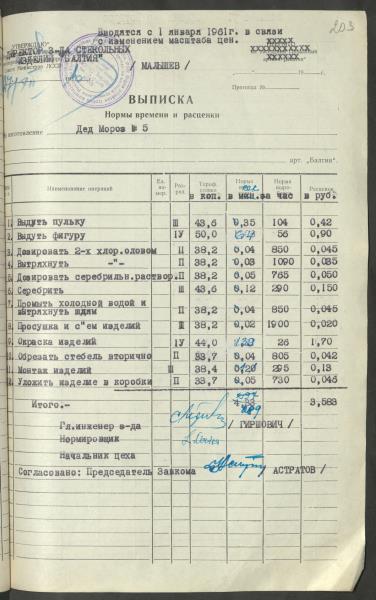 203
Вводятся с 1 января 1961г. в связи
с изменением масштаба цен.
"УТВЕРЖДАЮ"
ДИРЕКТОР З-ДА СТЕКОЛЬНЫХ
ИЗДЕЛИЙ "БАЛТИЯ"
/ МАЛЫШЕВ /
Протокол №
ВЫПИСКА
Нормы времени и расценки
Дед Мороз № 5
арт. „Балтия"
Наименование операций Ед. Раз-ряд Тариф. в коп. Норма в мин. Норма за час Расценок в руб.
1. Выдуть пульку Ш 43,6 0,35 104 0,42
2. Выдуть фигуру 1У 50,0 56 0,90
3. Дозировать 2-х хлор.оловом П 38,2 0,04 850 0,045
4. Вытряхнуть -"- П 38,2 0,03 1090 0,035
5. Дозировать серебрильн.раствор. П 38,2 0,05 765 0,050
6. Серебрить Ш 43,6 0,12 290 0,150
7. Промыть холодной водой и
вытряхнуть щдям П 38,2 0,04 850 0,045
8. Просушка и с"ем изделий Ш 38,2 0,02 1900 0,020
9. Окраска изделий 1У 44,0 26 1,70
Обрезать стебель вторично П 33,7 0,04 805 0,042
Монтаж изделий Ш 38,4 295 0,13
Уложить изделие в коробки П 33,7 0,05 730 0,046
Итого.- 3,583
Гл.инженер з-да / ГИРШОВИЧ /
Нормировщик
Начальник цеха
Согласовано: Председатель Завкома АСТРАТОВ /